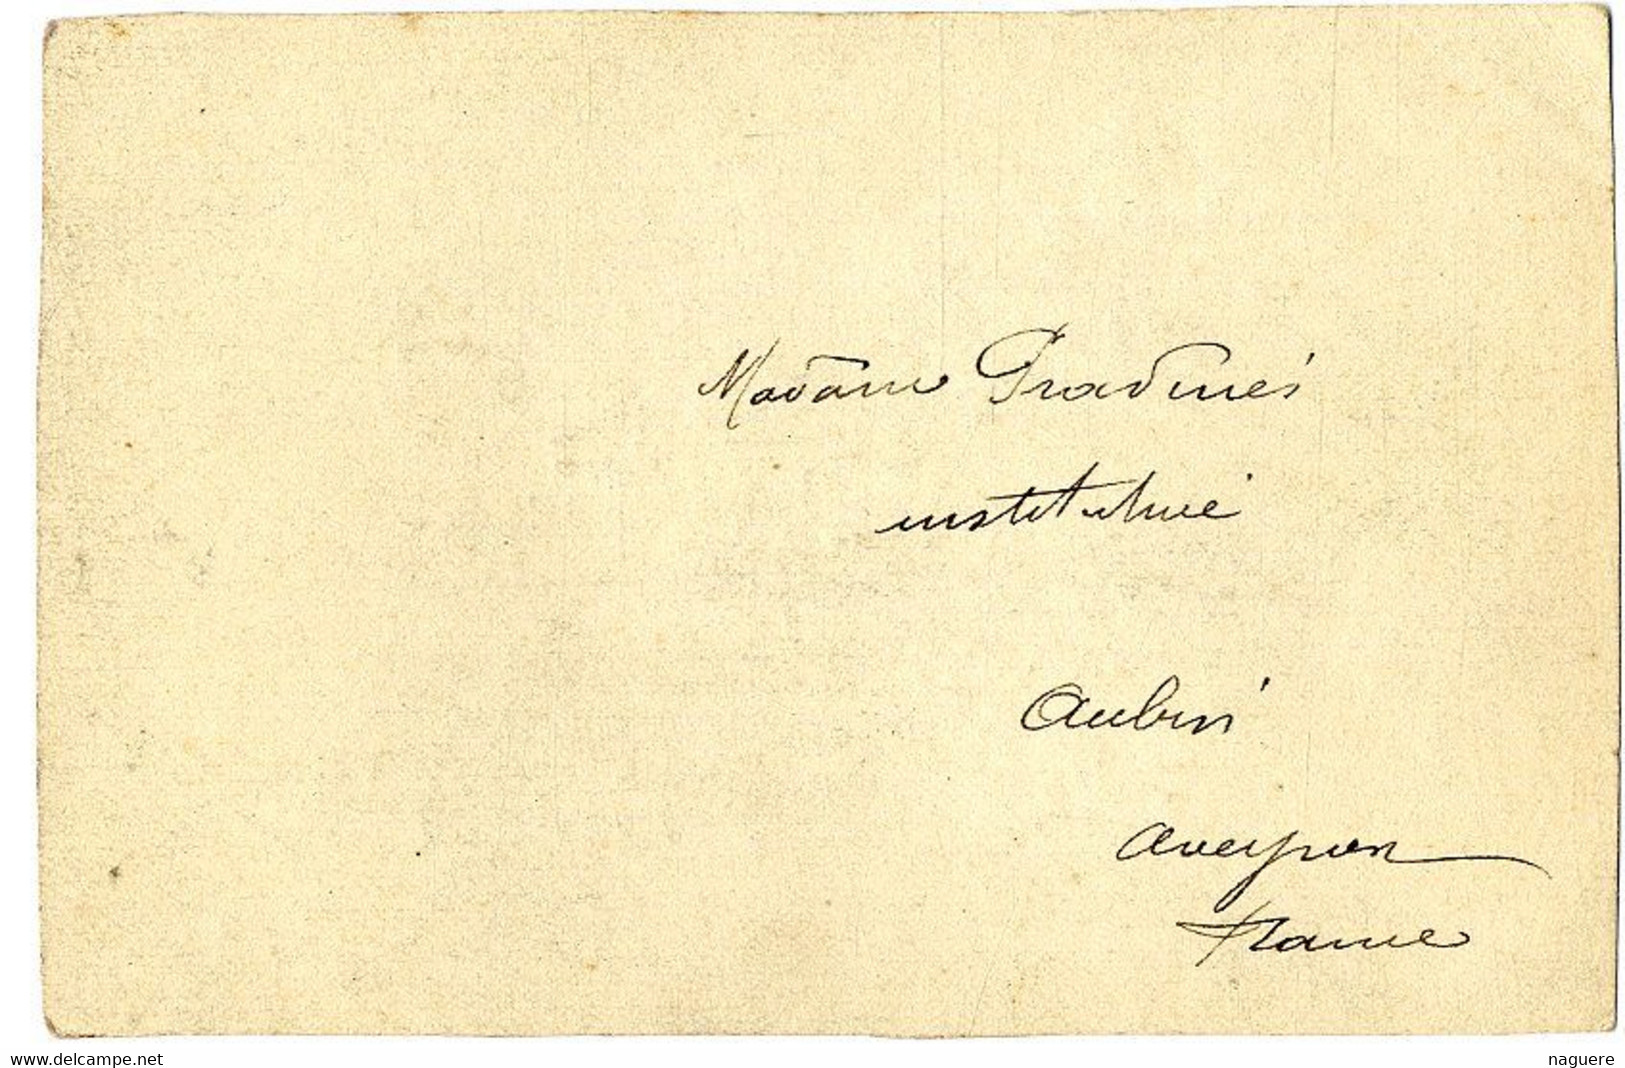 Madame Pradines
institutrice
Aubin
Aveyron
France
www.delcampe.net
naguere